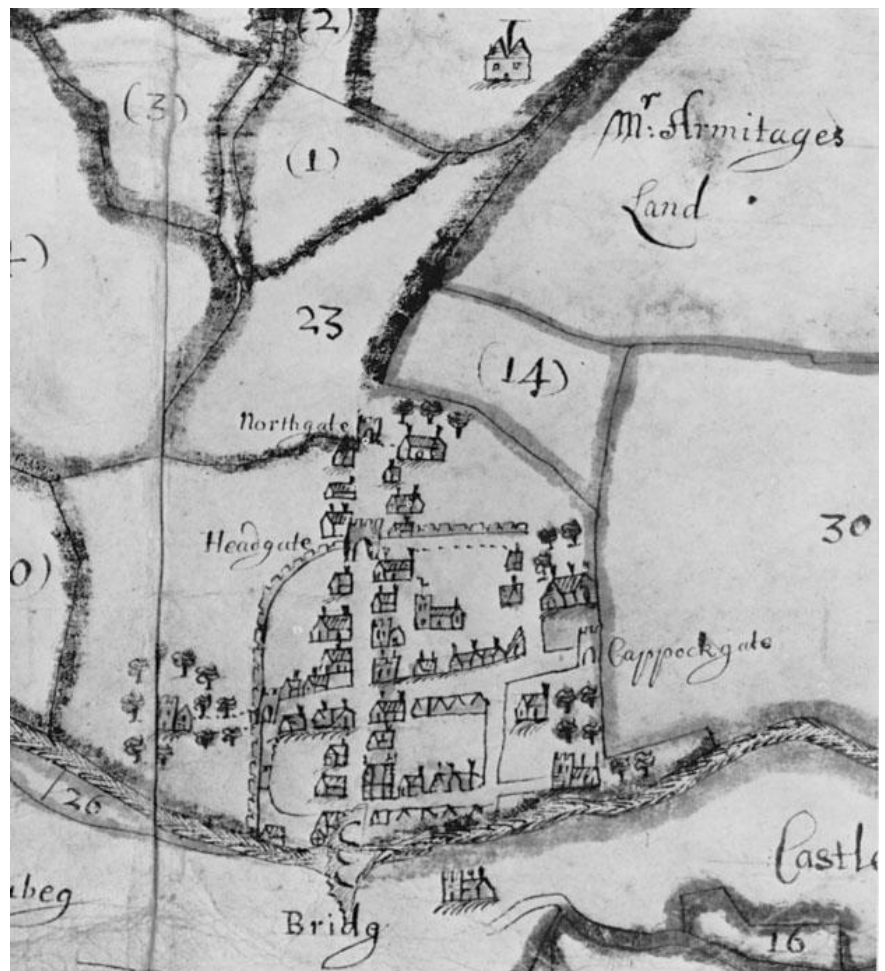 (2)
(3)
(1)
Mr: Armitages
Land
23
(14)
Northgate
30
Headgate
Cappockgate
20
Castle
Bridg
16